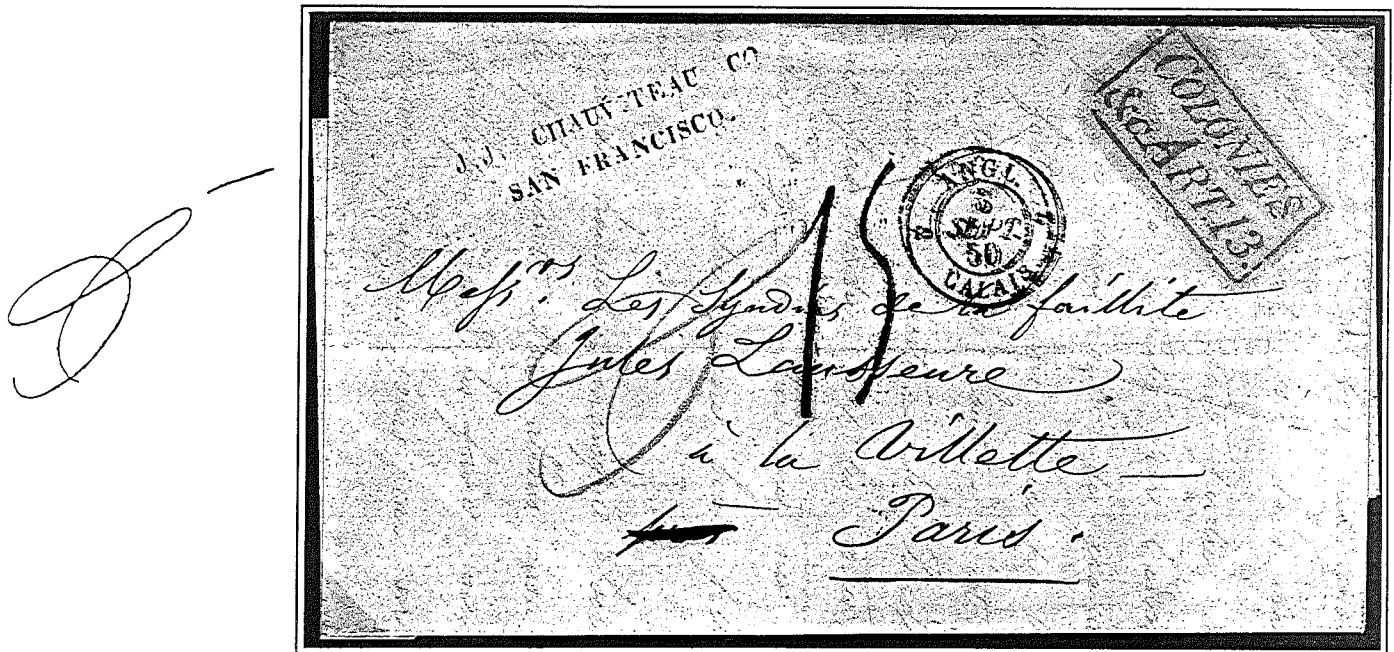 J.J. CHAUV TEAU CO
SAN FRANCISCO.
COLONIES
&c.ART.13.
ANGL.
5
SEPT.
50
CALAIS
15
Messrs. Les Syndics de la faillite
Jules Lausseure
à la Villette
Paris.